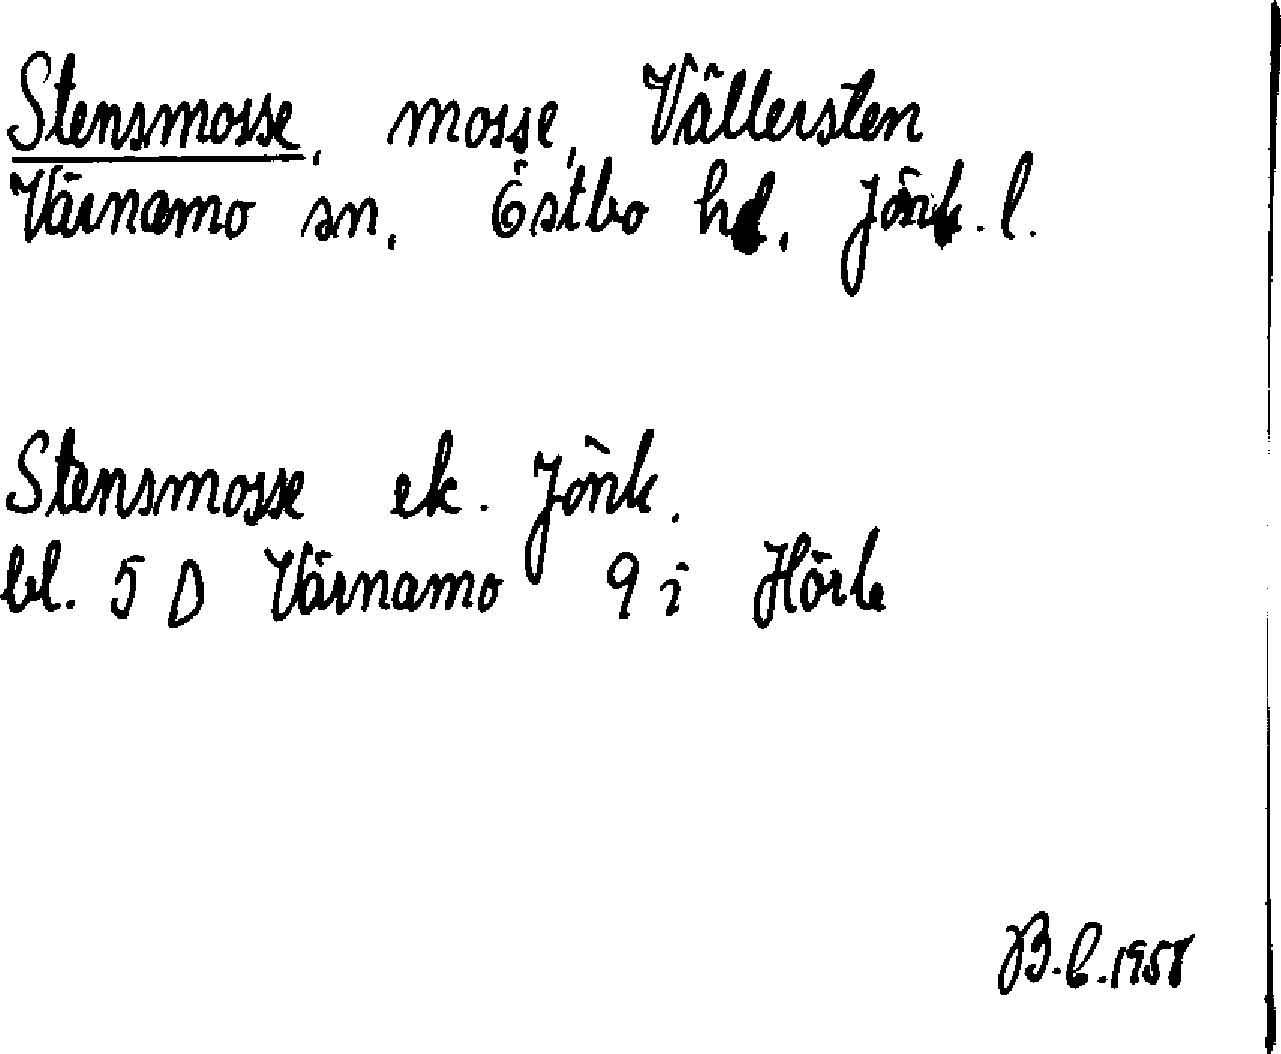 Stensmosse, mosse, Vällersten
Värnamo sn. Östbo hd. Jönk. l.
Stensmosse ek. Jönk.
bl. 5 D Värnamo 9 i Hörle
B.E. 1958